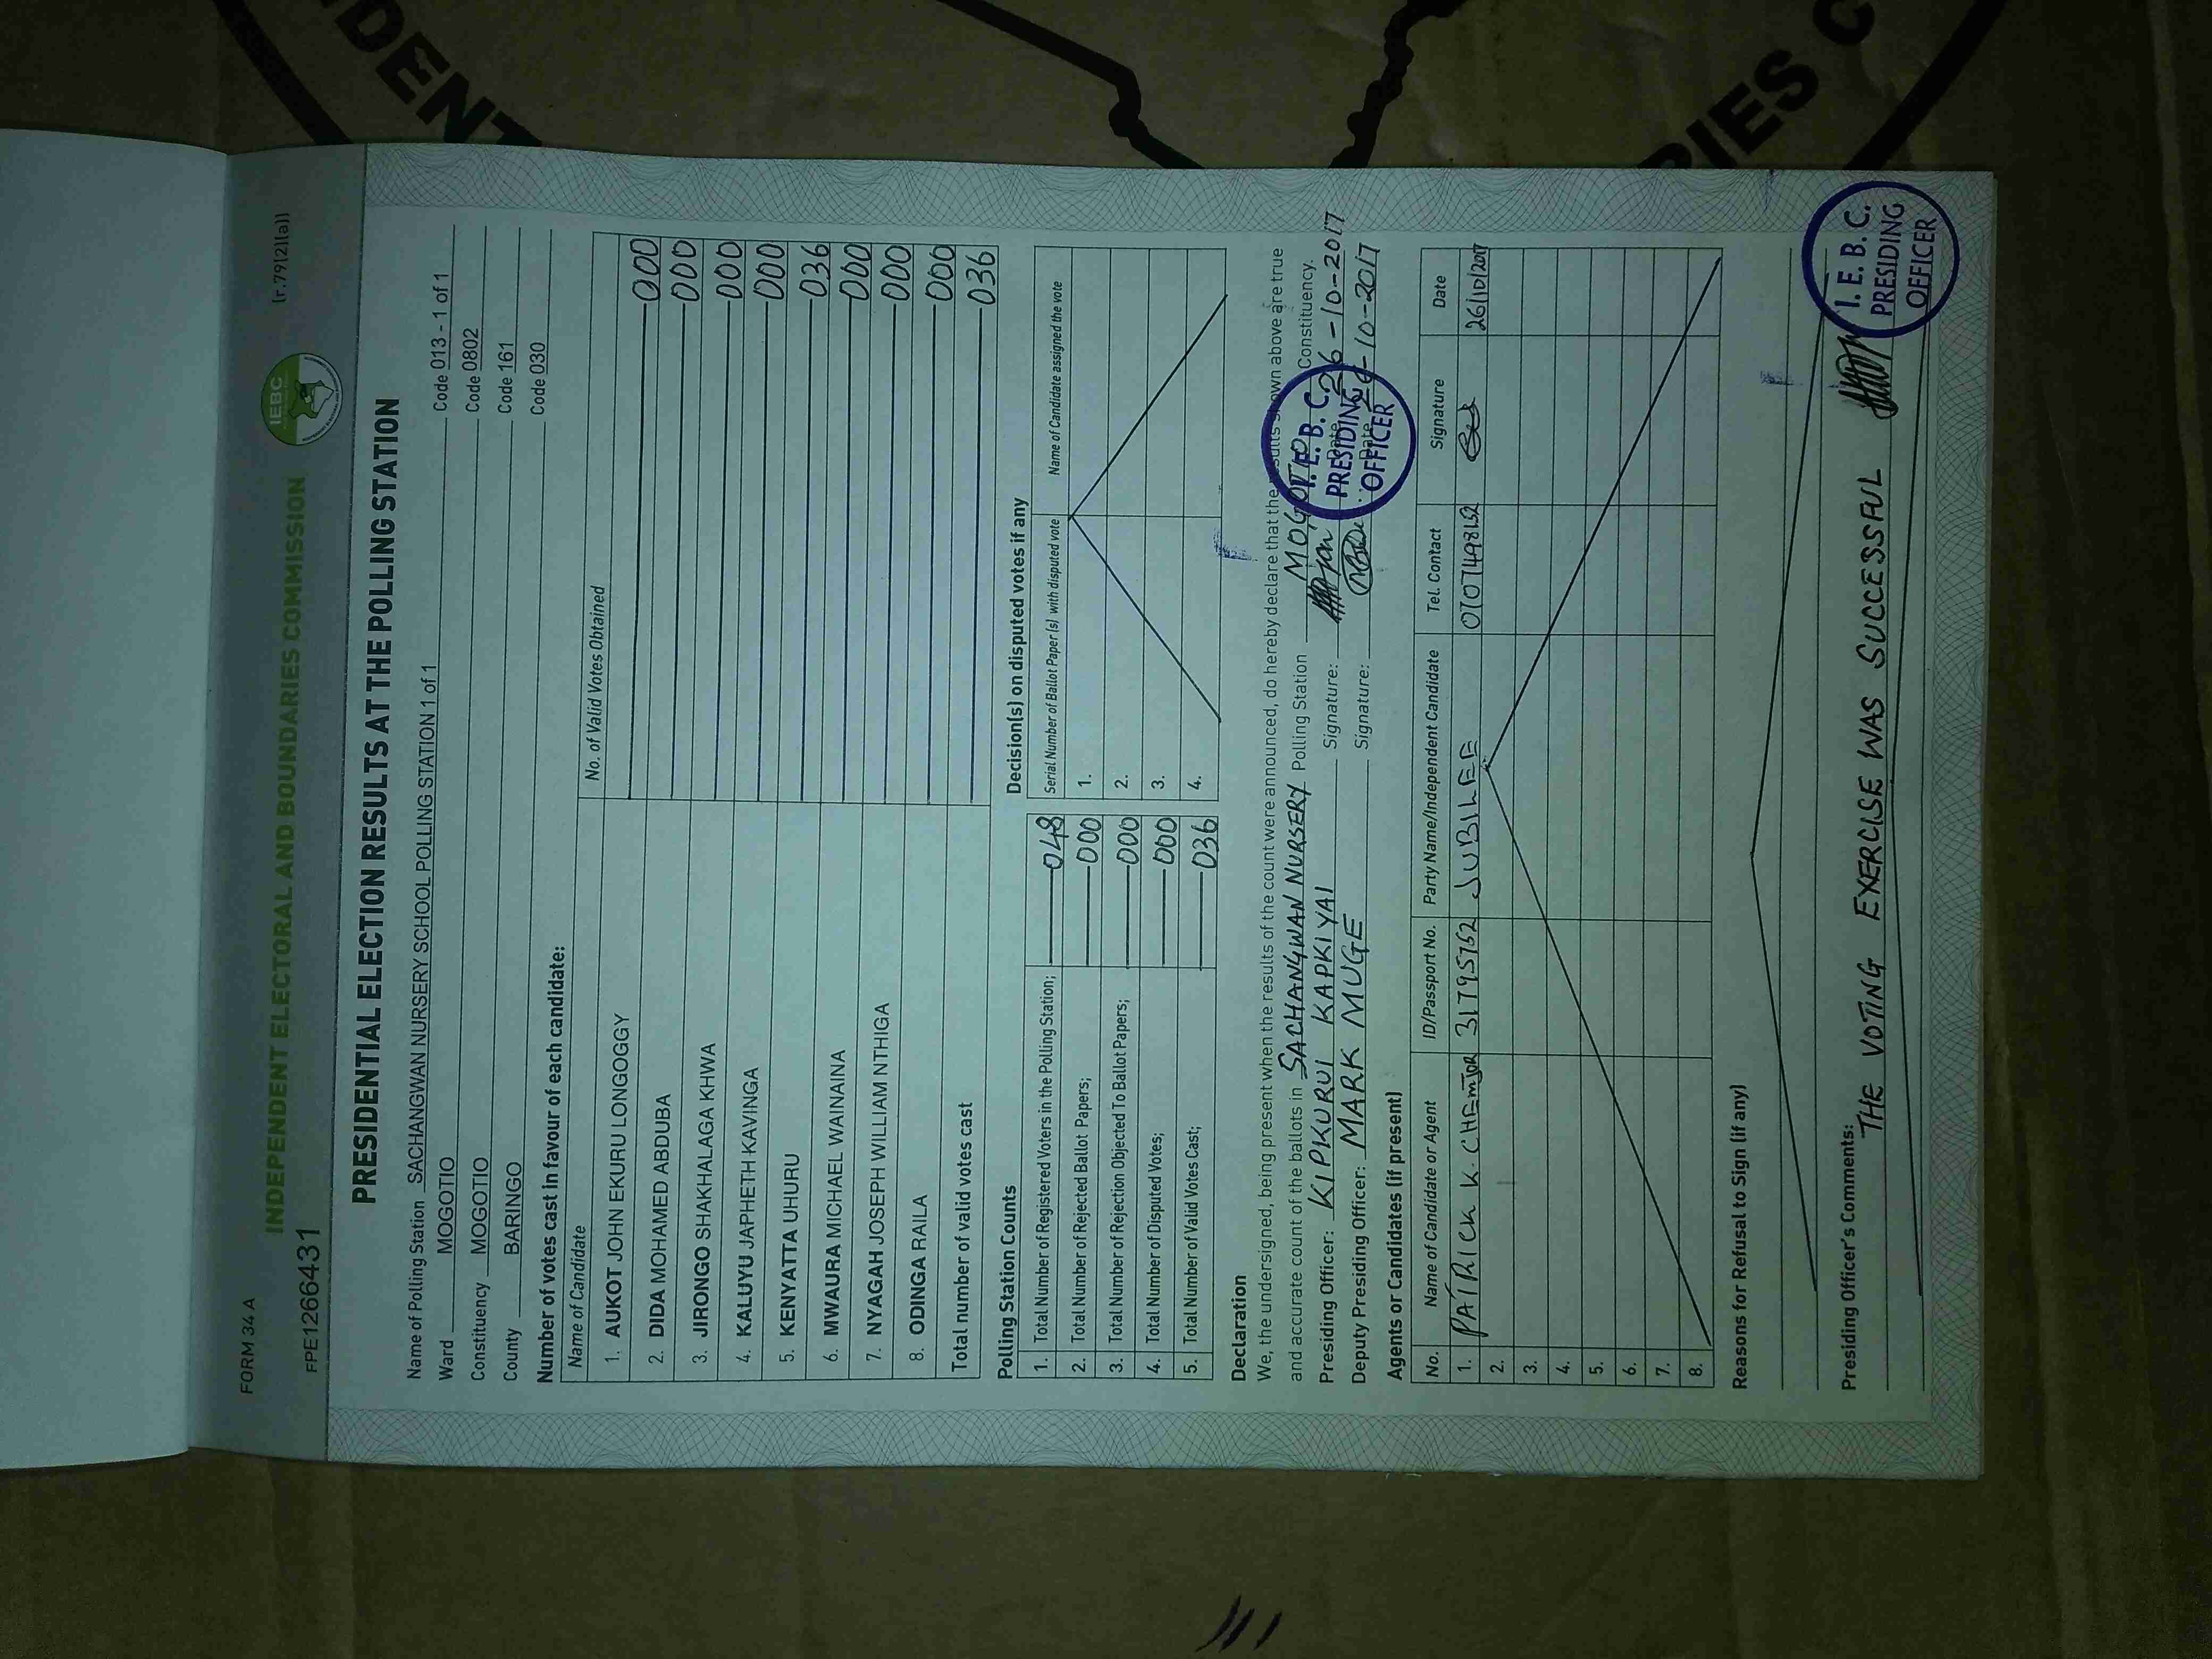 FORM 34 A
INDEPENDENT ELECTORAL AND BOUNDARIES COMMISSION
IEBC
(r.79(2)(a))
FPE1266431
PRESIDENTIAL ELECTION RESULTS AT THE POLLING STATION
Name of Polling Station SACHANGWAN NURSERY SCHOOL POLLING STATION 1 of 1 Code 013 - 1 of 1
Ward MOGOTIO Code 0802
Constituency MOGOTIO Code 161
County BARINGO Code 030
Number of votes cast in favour of each candidate:
Name of Candidate No. of Valid Votes Obtained
1. AUKOT JOHN EKURU LONGOGGY 000
2. DIDA MOHAMED ABDUBA 000
3. JIRONGO SHAKHALAGA KHWA 000
4. KALUYU JAPHETH KAVINGA 000
5. KENYATTA UHURU 036
6. MWAURA MICHAEL WAINAINA 000
7. NYAGAH JOSEPH WILLIAM NTHIGA 000
8. ODINGA RAILA 000
Total number of valid votes cast 036
Polling Station Counts
1. Total Number of Registered Voters in the Polling Station; 048
2. Total Number of Rejected Ballot Papers; 000
3. Total Number of Rejection Objected To Ballot Papers; 000
4. Total Number of Disputed Votes; 000
5. Total Number of Valid Votes Cast; 036
Decision(s) on disputed votes if any
Serial Number of Ballot Paper (s) with disputed vote Name of Candidate assigned the vote
1.
2.
3.
4.
Declaration
We, the undersigned, being present when the results of the count were announced, do hereby declare that the results shown above are true
and accurate count of the ballots in SACHANGWAN NURSERY Polling Station MOGOTIO Constituency.
Presiding Officer: KIPKURUI KAPKIYAI Signature: Date 26-10-2017
Deputy Presiding Officer: MARK MUGE Signature: Date 26-10-2017
I. E. B. C.
PRESIDING
OFFICER
Agents or Candidates (if present)
No. Name of Candidate or Agent ID/Passport No. Party Name/Independent Candidate Tel. Contact Signature Date
1. PATRICK K. CHEMJOR 31795762 JUBILEE 0707498152 26/10/2017
2.
3.
4.
5.
6.
7.
8.
Reasons for Refusal to Sign (if any)
Presiding Officer's Comments:
THE VOTING EXERCISE WAS SUCCESSFUL
I. E. B. C.
PRESIDING
OFFICER